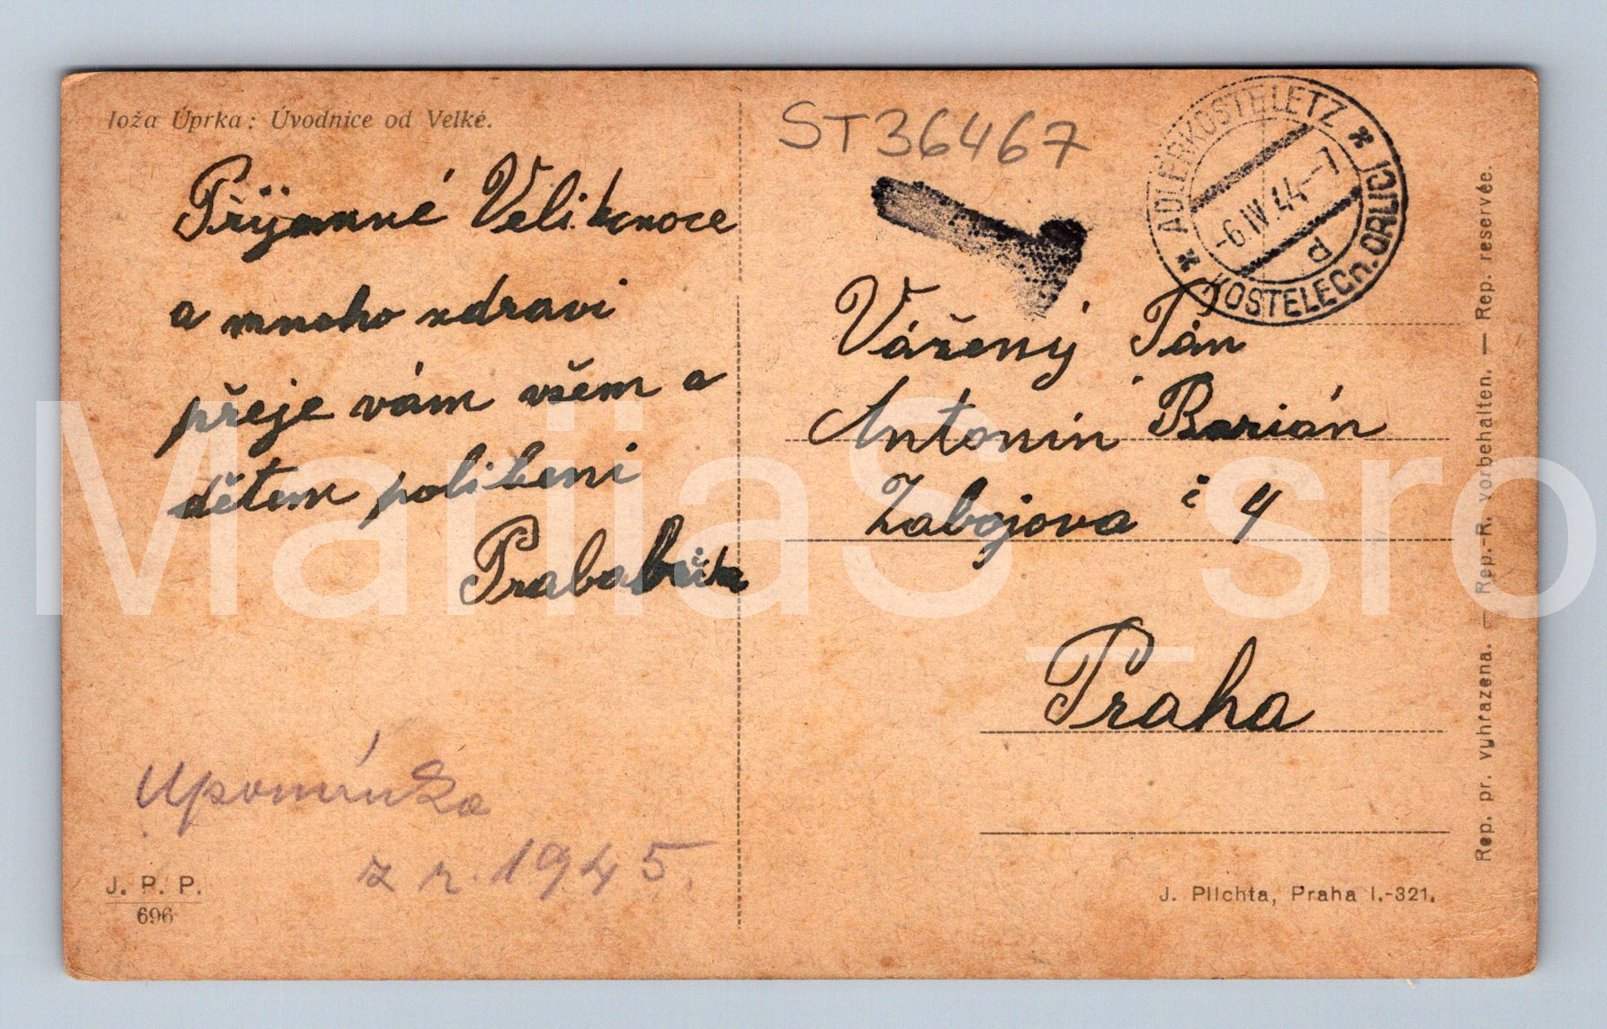 Ioža Úprka: Úvodnice od Velké.
Přijemné Velikonoce
a mnoho zdraví
přeje vám všem a
dětem políbení
Prababička
Upomínka
z r. 1945.
J. P. P.
696
ST36467
ADLERKOSTELETZ
-6.IV.44.-7
d
KOSTELEC n. ORLICÍ
Vážený Pán
Antonín Barián
Zabojova č 4
Praha
J. Plichta, Praha I.-321.
Rep. pr. vyhrazena. — Rep.-R. vorbehalten. — Rep. reservée.
MariiaS_sro